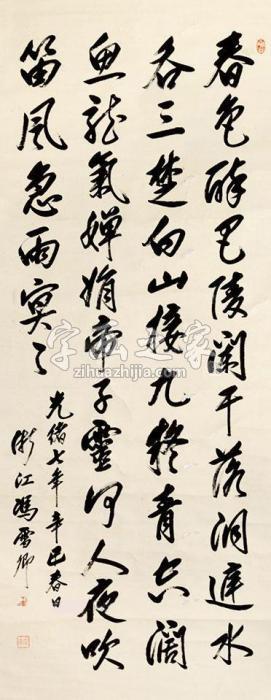 春色醉巴陵闌干落洞庭水
吞三楚白山接九疑青空闊
魚龍氣嬋娟帝子靈何人夜吹
笛風急雨冥〻
光緒七年辛巳春日
浙江馮雪卿
字画之家
zihuazhijia.com